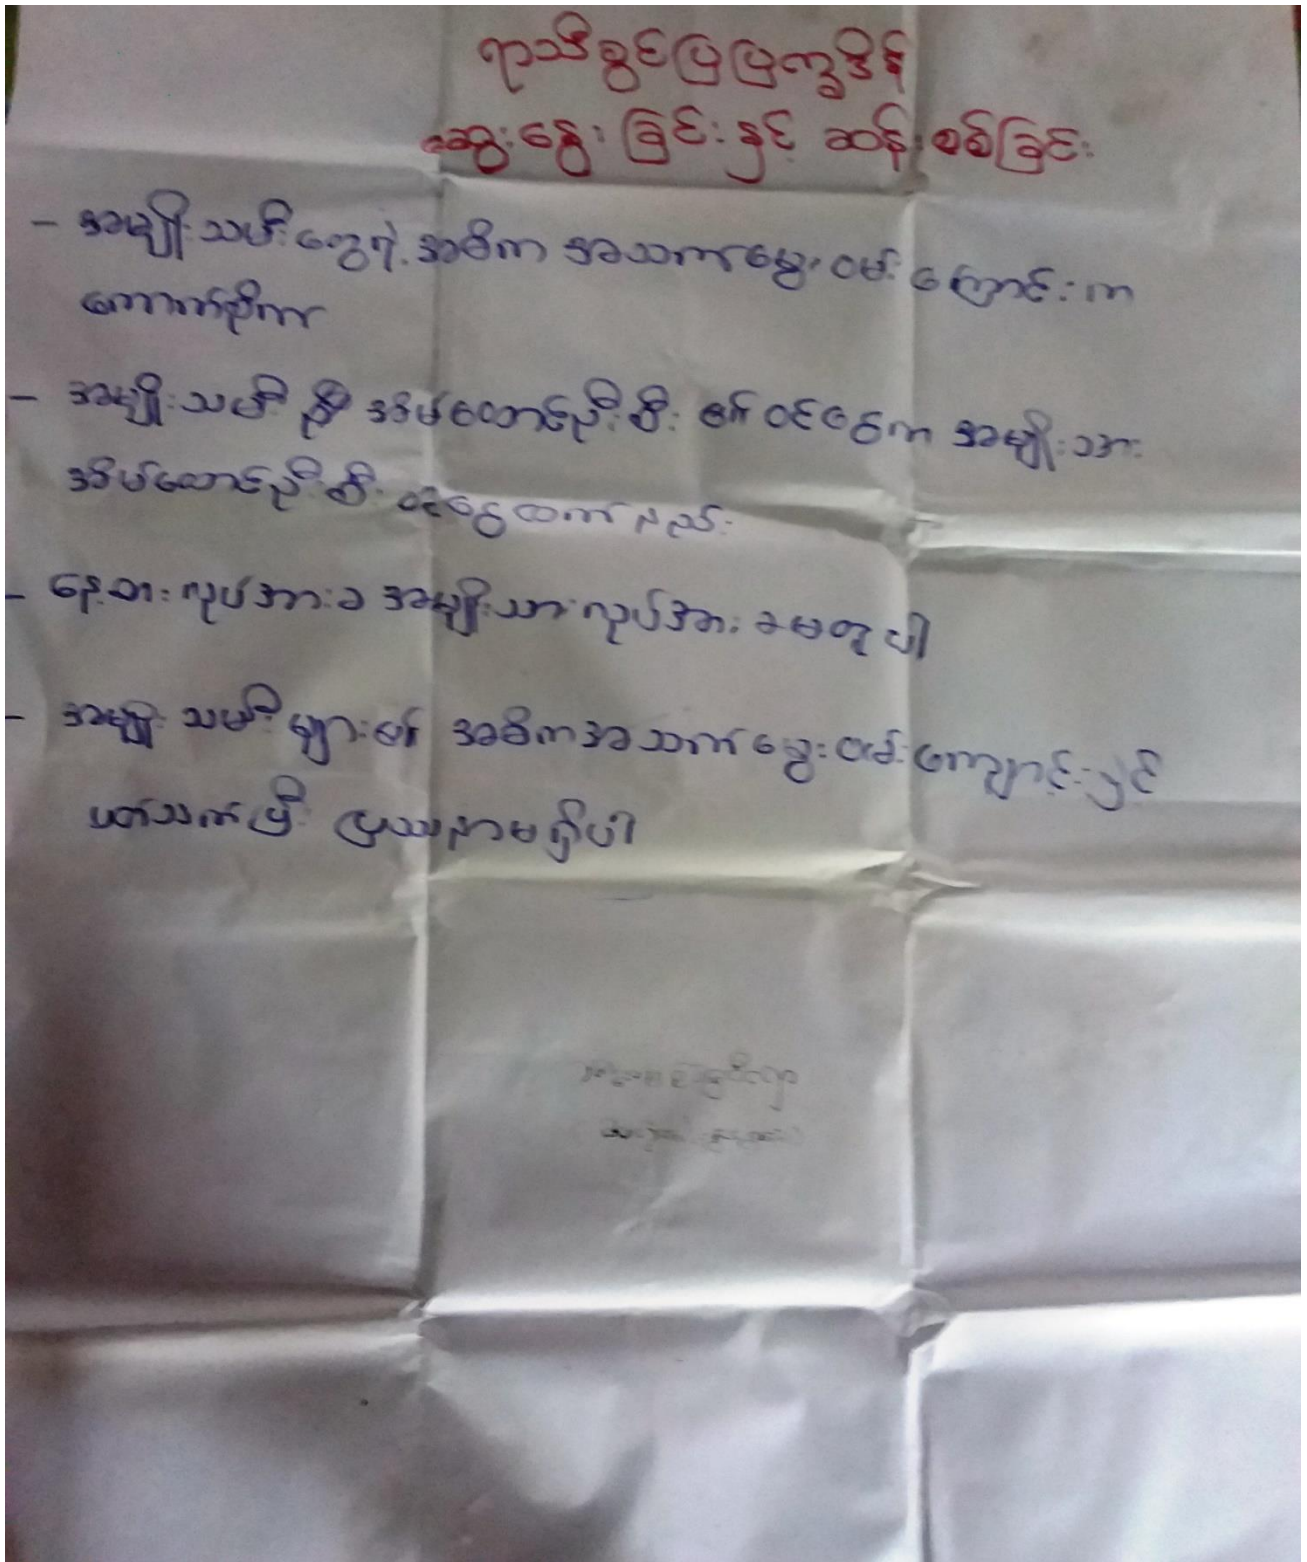 ရာသီခွင်ပြပြက္ခဒိန်
ဆွေးနွေးခြင်းနှင့် ဆန်းစစ်ခြင်း
- အမျိုးသမီးတွေရဲ့ အဓိက အသက်မွေးဝမ်းကြောင်းက
ကောက်စိုက်
- အမျိုးသမီးဦး အိမ်ထောင်ဦးစီး ၏ ဝင်ငွေက အမျိုးသား
အိမ်ထောင်ဦးစီး ဝင်ငွေထက်နည်း
- နေ့စားလုပ်အားခ အမျိုးသားလုပ်အားခမတူပါ
- အမျိုးသမီးများ၏ အဓိကအသက်မွေးဝမ်းကျောင်းနှင့်
ပတ်သက်ပြီး ပြဿနာမရှိပါ